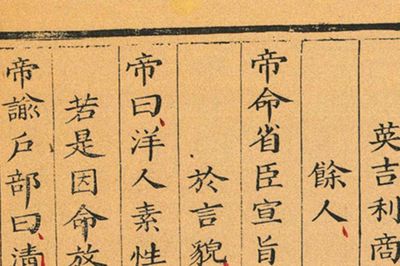 英吉利商
餘人
帝命省臣宣旨
於言貌
帝曰洋人素性
若是因命放
帝諭戶部曰淸